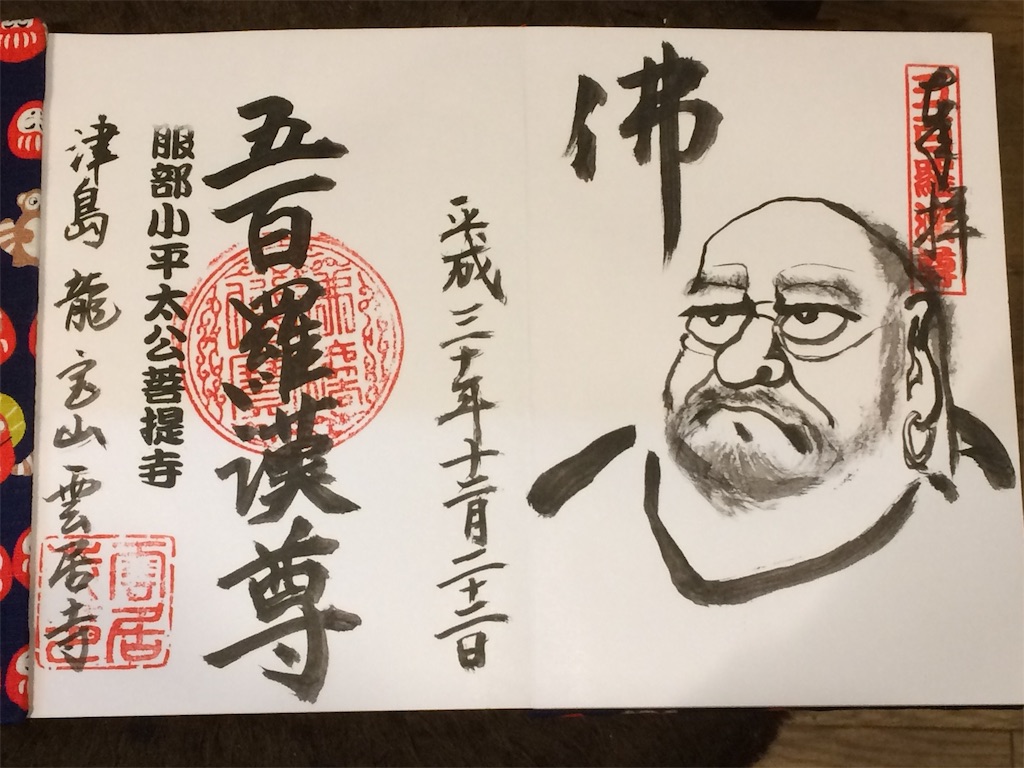 奉拝
五百羅漢尊
佛
平成三十年十二月二十二日
五百羅漢尊
服部小平太公菩提寺
津島 龍 山 雲居寺
雲居